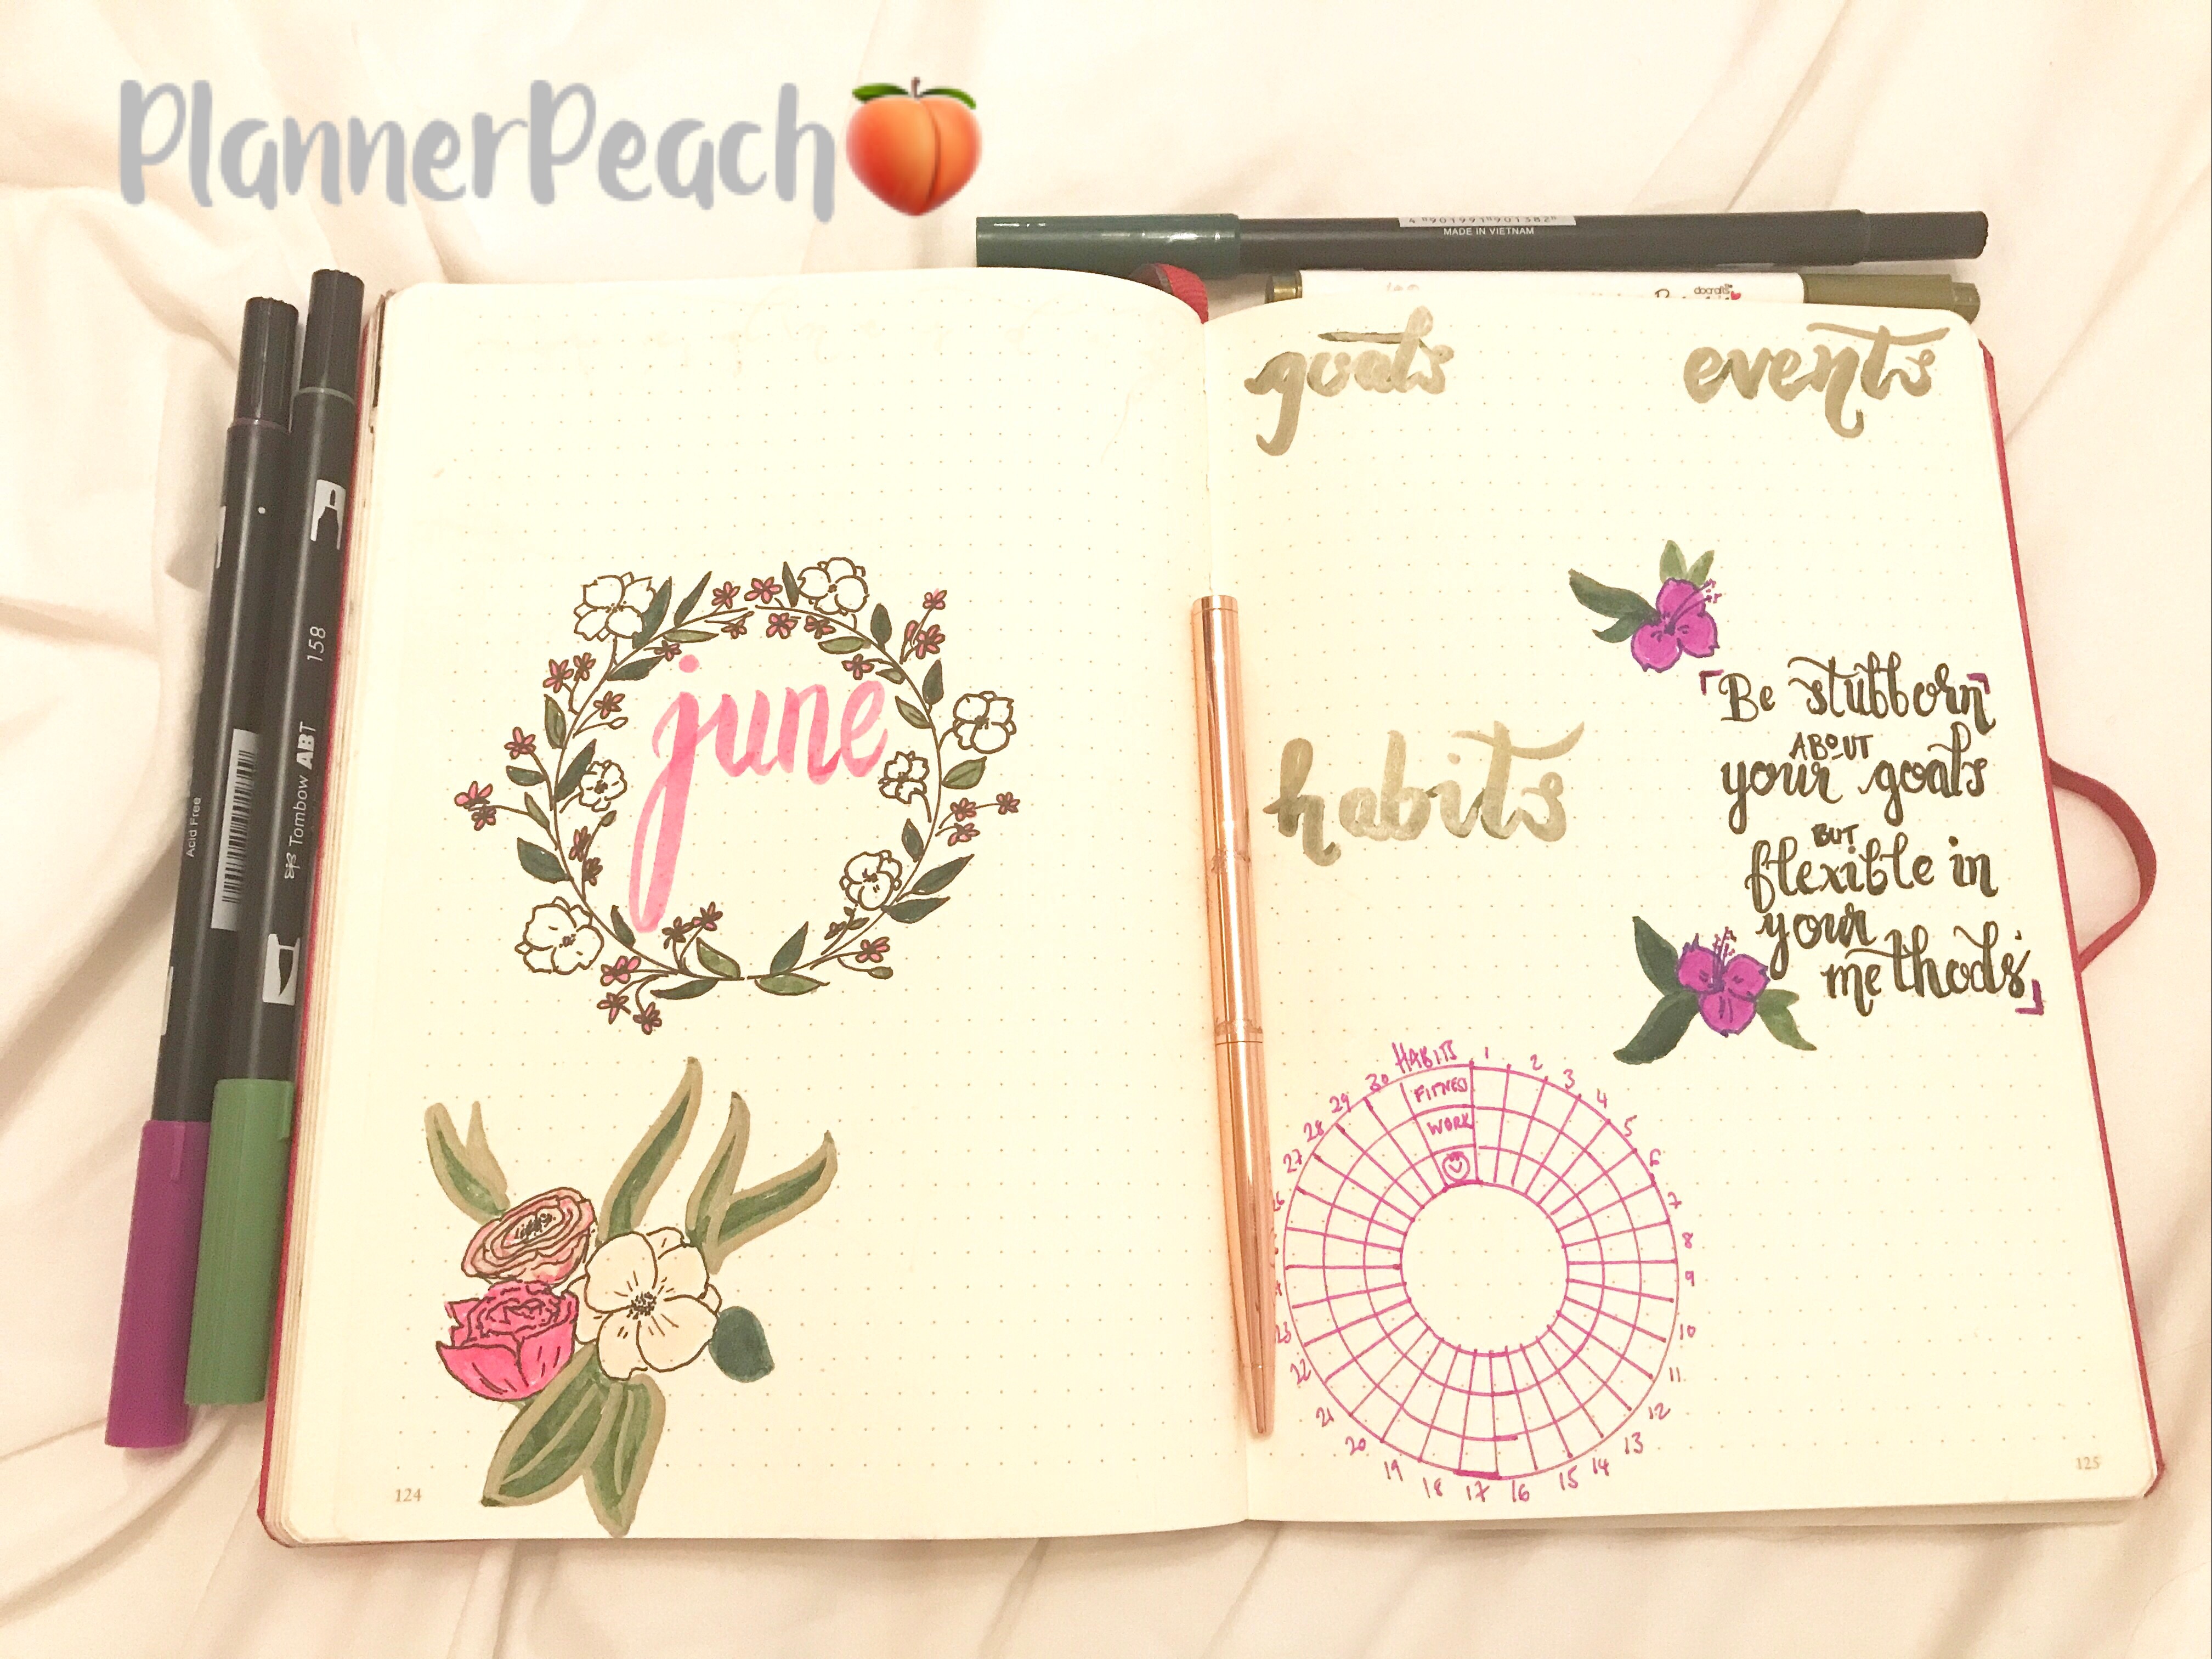 PlannerPeach
4 901991 901382
MADE IN VIETNAM
docrafts
158
Tombow ABT
Acid Free
june
124
goals
events
habits
「Be stubborn
ABOUT
your goals
BUT
flexible in
your
methods」
HABITS
FITNESS
WORK
1
2
3
4
5
6
7
8
9
10
11
12
13
14
15
16
17
18
19
20
21
22
23
27
28
29
30
125